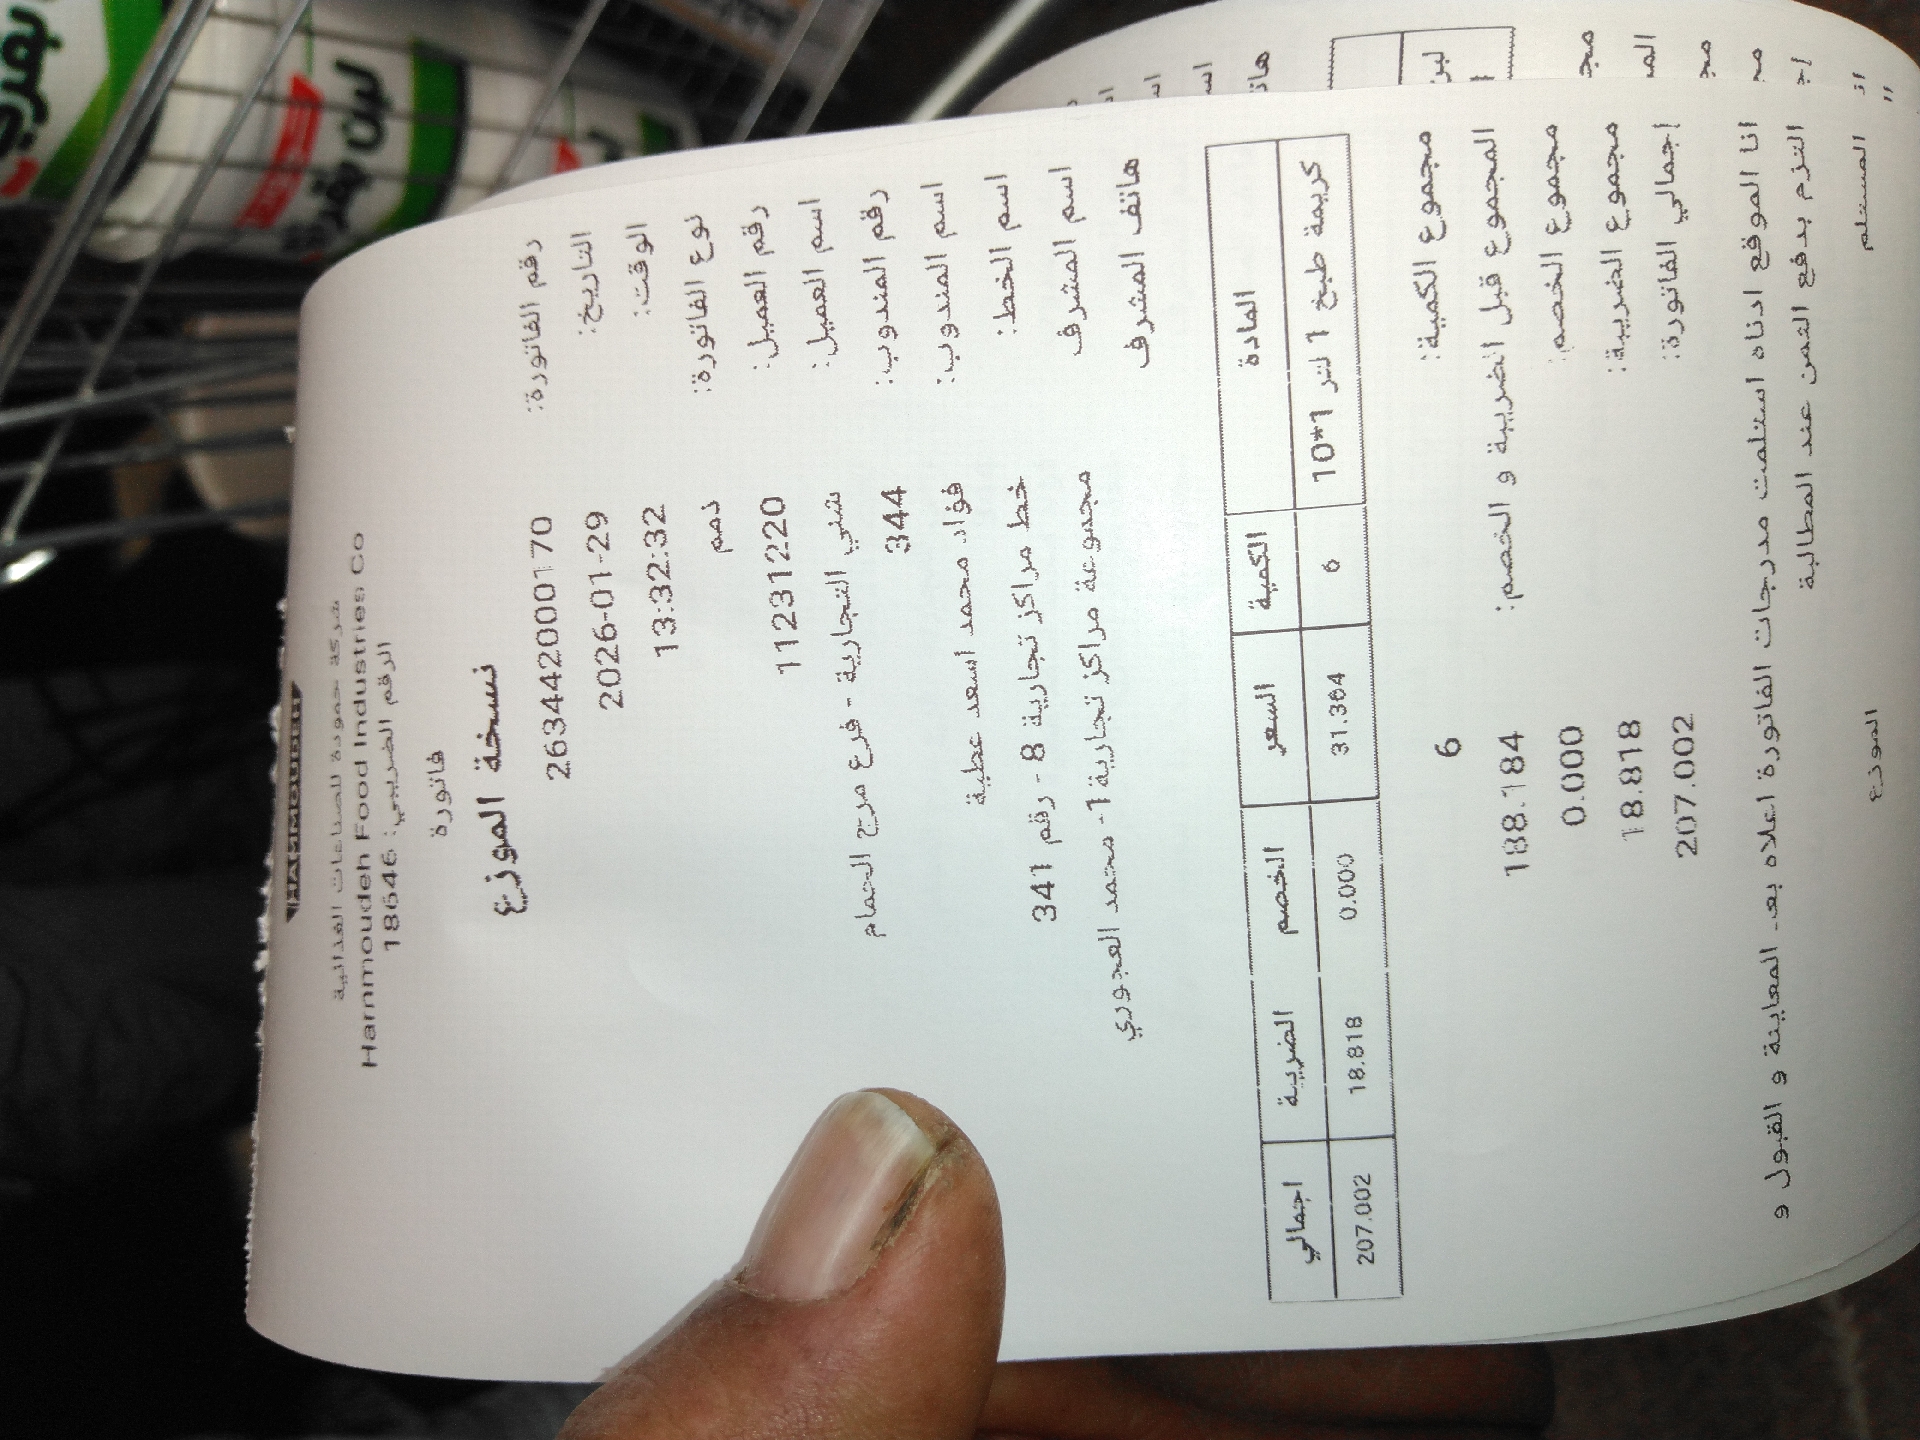 HAMMOUDEH
شركة حمودة للصناعات الغذائية
Hammoudeh Food Industries Co
الرقم الضريبي: 18646
فاتورة
نسخة الموزع
رقم الفاتورة: 2634420000170
التاريخ: 2026-01-29
الوقت: 13:32:32
نوع الفاتورة: ذمم
رقم العميل: 11231220
اسم العميل: شني التجارية - فرع مرج الحمام
رقم المندوب: 344
اسم المندوب: فؤاد محمد اسعد عطية
اسم الخط: خط مراكز تجارية 8 - رقم 341
اسم المشرف مجموعة مراكز تجارية 1- محمد العجوري
هاتف المشرف
المادة الكمية السعر الخصم الضريبة اجمالي
كريمة طبخ 1 لتر 1*10 6 31.364 0.000 18.818 207.002
مجموع الكمية: 6
المجموع قبل الضريبة و الخصم: 188.184
مجموع الخصم: 0.000
مجموع الضريبة: 18.818
إجمالي الفاتورة: 207.002
انا الموقع ادناه استلمت مدرجات الفاتورة اعلاه بعد المعاينة و القبول و
التزم بدفع الثمن عند المطالبة
المستلم الموزع
لبن بقري